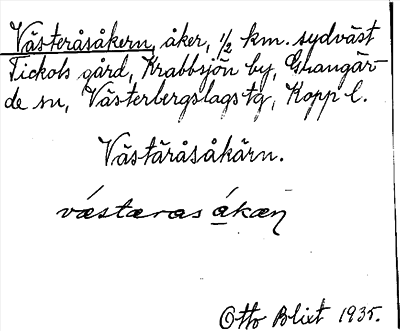 Västeråsåkern, åker, 1/2 km. sydväst
Tickols gård, Krabbsjön by, Grangär-
de sn, Västerbergslags tg, Kopp l.
Västäråsåkärn.
västæras ákæṇ
Otto Blixt 1935.